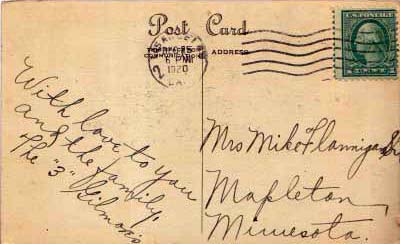 Post Card
THIS SPACE FOR
COMMUNICATIONS
ADDRESS
6 PM
1920
LA.
2
U.S. POSTAGE
With love to you
and the family.
The "3" Gilmores
Mrs Mike Flannigan Sr
Mapleton,
Minnesota.